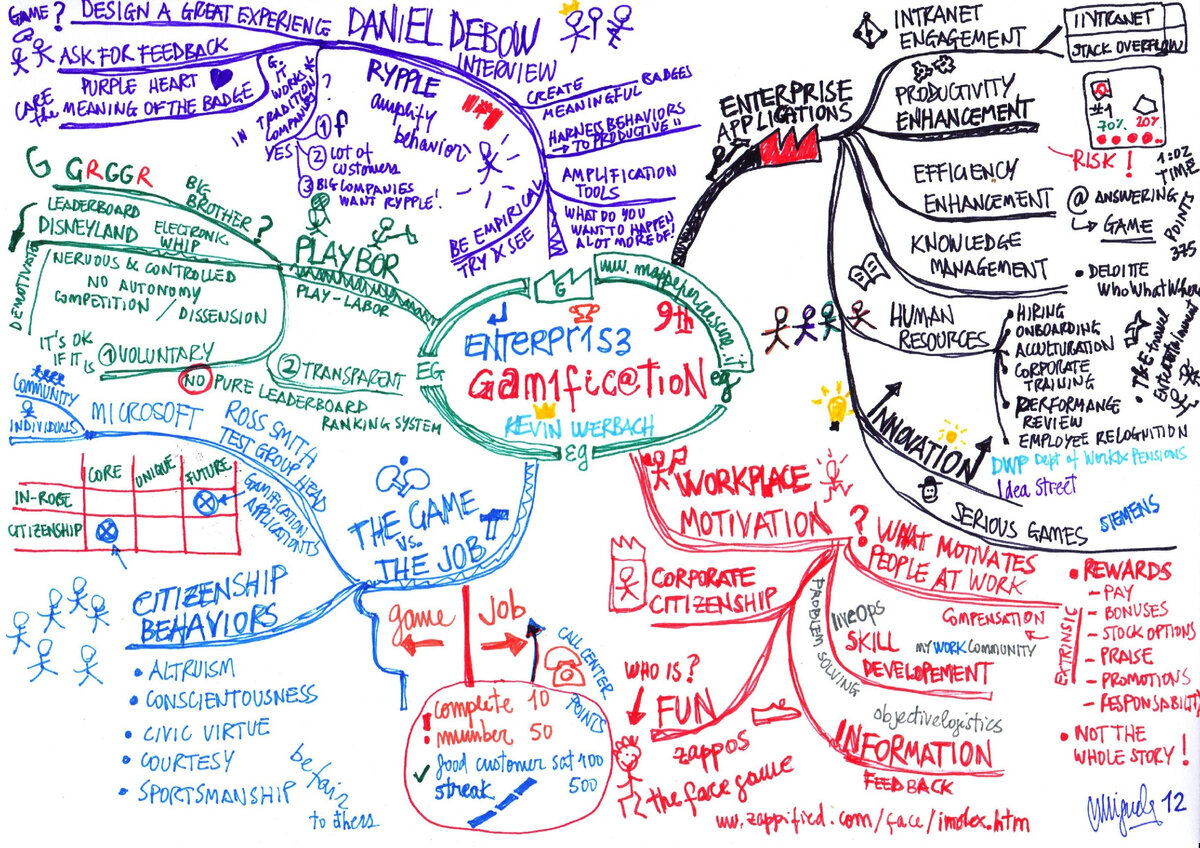 GAME?
DESIGN A GREAT EXPERIENCE
ASK FOR FEEDBACK
PURPLE HEART
CARE the MEANING OF THE BADGE
DANIEL DEBOW
INTERVIEW
RYPPLE
amplify
behavior
IT WORKS
IN TRADITION
COMPANIES?
YES
1 f
2 LOT OF
CUSTOMERS
3 BIG COMPANIES
WANT RYPPLE!
CREATE BADGES
MEANINGFUL
HARNESS BEHAVIORS
→ TO PRODUCTIVE "
AMPLIFICATION
TOOLS
WHAT DO YOU
WANT TO HAPPEN
A LOT MORE OF!
BE EMPIRICAL
TRY & SEE
G GRGGR
BIG
BROTHER
?
LEADERBOARD
DISNEYLAND
ELECTRONIC
WHIP
DEMOTIVATOR
NERVOUS & CONTROLLED
NO AUTONOMY
COMPETITION / DISSENSION
PLAYBOR
PLAY-LABOR
IT'S OK
IF IT IS
1 VOLUNTARY
2 TRANSPARENT
NO PURE LEADERBOARD
RANKING SYSTEM
G
www.mappepercrescere.it
9th
ENTERPR1S3
GAM1FIC@TION
KEVIN WERBACH
EG
eg
eg
ENTERPRISE
APPLICATIONS
INTRANET
ENGAGEMENT
INTRANET
STACK OVERFLOW
PRODUCTIVITY
ENHANCEMENT
#1
70% 20%
RISK!
EFFICIENCY
ENHANCEMENT
1:02
TIME
@ ANSWERING
→ GAME
POINTS
375
KNOWLEDGE
MANAGEMENT
• DELOITTE
WhoWhatWhere
HUMAN
RESOURCES
• HIRING
• ONBOARDING
• ACCULTURATION
• CORPORATE
TRAINING
• PERFORMANCE
REVIEW
• EMPLOYEE RELOGNITION
• T&E travel
Entertainment
INNOVATION
DWP Dept of Work & PENSIONS
Idea Street
SERIOUS GAMES
SIEMENS
COMMUNITY
INDIVIDUALS
MICROSOFT
ROSS SMITH
TEST GROUP HEAD
CORE
UNIQUE
FUTURE
IN-ROBE
CITIZENSHIP
GAMIFICATION
APPLICATIONTS
THE GAME
vs.
THE JOB
CITIZENSHIP
BEHAVIORS
• ALTRUISM
• CONSCIENTOUSNESS
• CIVIC VIRTUE
• COURTESY
• SPORTSMANSHIP
be fair
to thers
game
JOB
CALL CENTER
POINTS
complete 10
mumber 50
good customer sat 100
streak 500
WORKPLACE
MOTIVATION
?
WHAT MOTIVATES
PEOPLE AT WORK
COMPENSATION
EXTRINSIC
• REWARDS
- PAY
- BONUSES
- STOCK OPTIONS
- PRAISE
- PROMOTIONS
- RESPONSABILITY
• NOT THE
WHOLE STORY!
CORPORATE
CITIZENSHIP
PROBLEM SOLVING
liveOps
SKILL
DEVELOPEMENT
MYWORKCOMMUNITY
objectivelogistics
INFORMATION
FEEDBACK
WHO IS?
FUN
ZAPPOS
the face game
www.zappified.com/face/imdex.htm
12